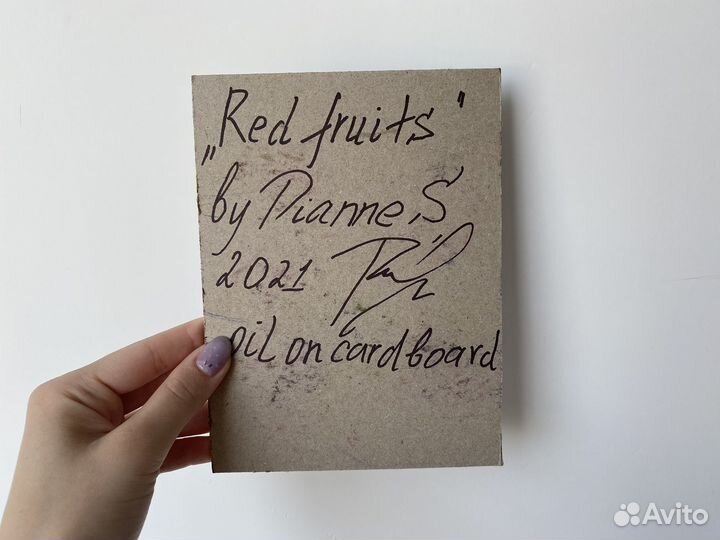 „Red fruits"
by Dianne S
2021
oil on cardboard
Avito